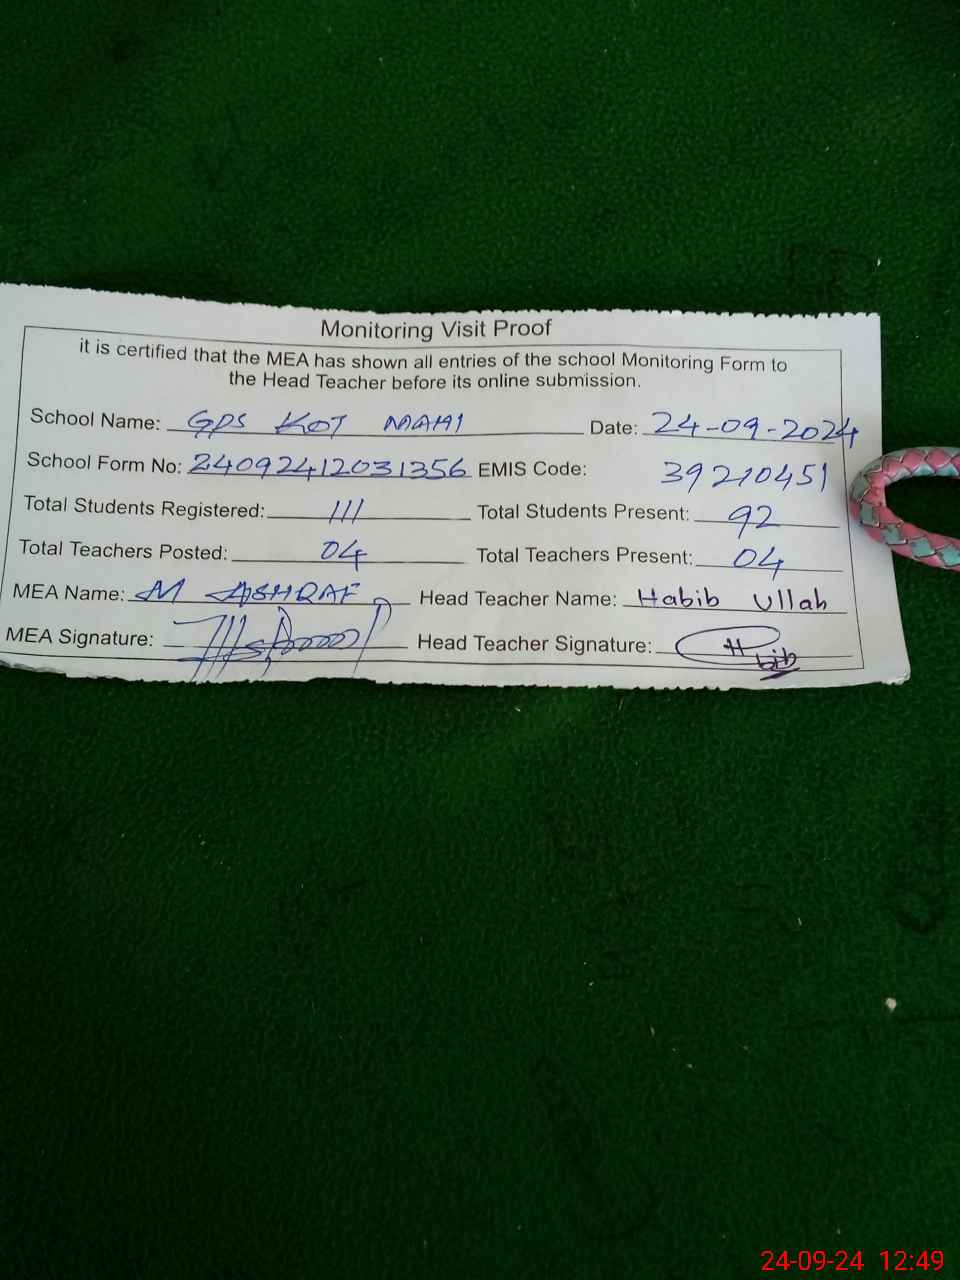 Monitoring Visit Proof
it is certified that the MEA has shown all entries of the school Monitoring Form to
the Head Teacher before its online submission.
School Name: GPS KOT MAHI Date: 24-09-2024
School Form No: 24092412031356 EMIS Code: 39210451
Total Students Registered: 111 Total Students Present: 92
Total Teachers Posted: 04 Total Teachers Present: 04
MEA Name: M ASHRAF Head Teacher Name: Habib Ullah
MEA Signature: Head Teacher Signature:
24-09-24 12:49